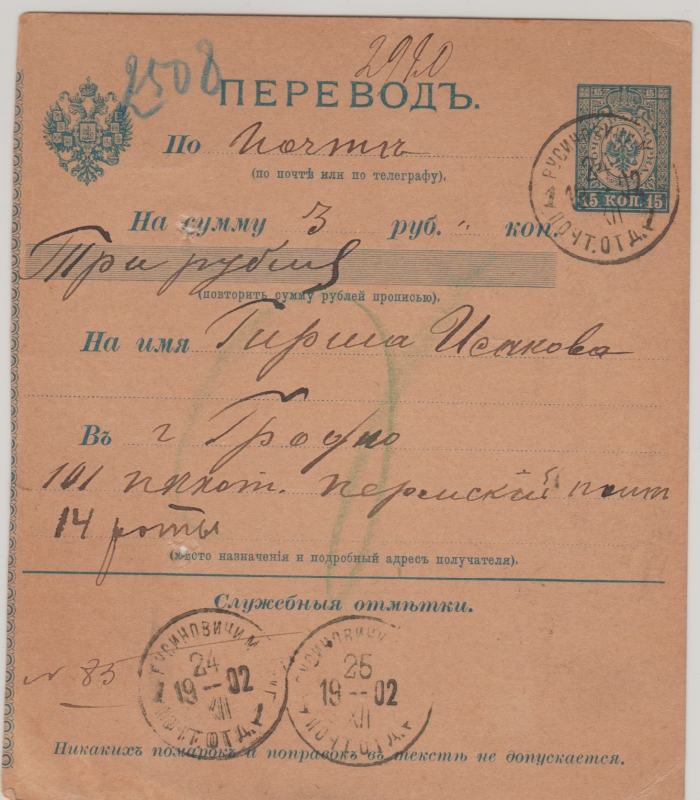 2508
2920
ПЕРЕВОДЪ.
По Почтѣ
(по почтѣ или по телеграфу).
15 КОП. 15
РУСИНОВИЧИ
24
02
XII
ПОЧТ.ОТД.
На сумму 3 руб. " коп.
Три рубля
(повторить сумму рублей прописью).
На имя Гирша Исакова
Въ г Гродно
101 пѣхот. пермскій полк
14 роты
(мѣсто назначенія и подробный адресъ получателя).
Служебныя отмѣтки.
РУСИНОВИЧИ М.
24
19--02
XII
ПОЧТ.ОТД.
РУСИНОВИЧИ
25
19--02
XII
ПОЧТ.ОТД.
№ 85
Никакихъ помарокъ и поправокъ въ текстѣ не допускается.